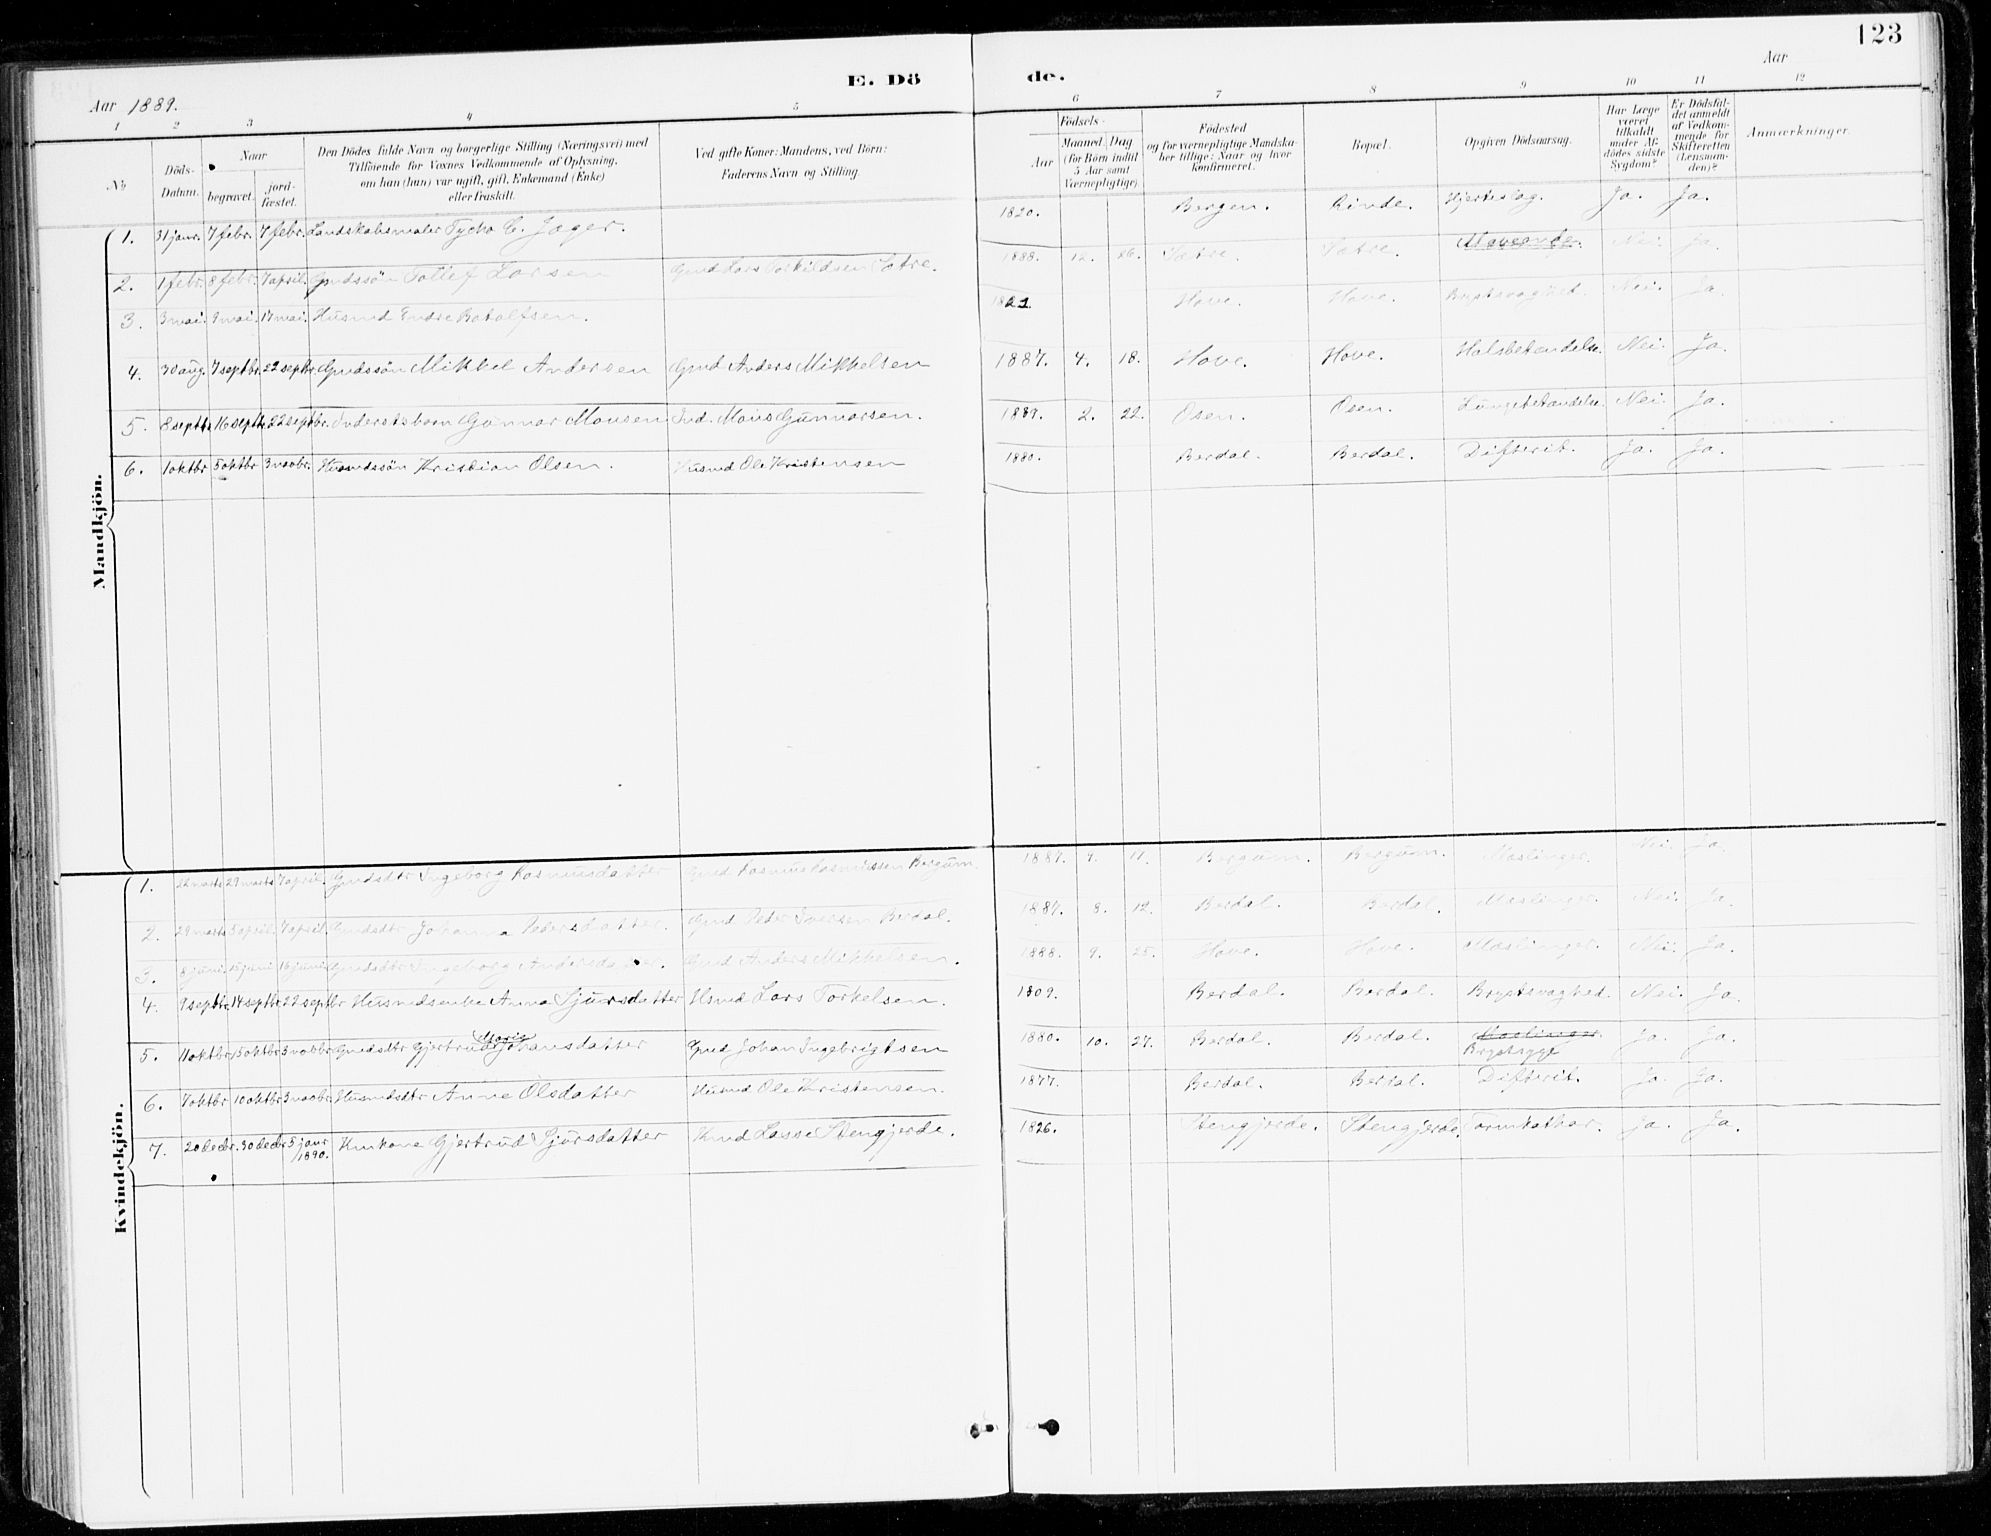 123
E. Dö de.
Aar 1889. Aar
1 2 3 4 5 6 7 8 9 10 11 12
№ Döds-Datum. Naar begravet. jordfæstet. Den Dödes fulde Navn og borgerlige Stilling (Næringsvei) med Tilföiende for Voxnes Vedkommende af Oplysning, om han (hun) var ugift, gift, Enkemand (Enke) eller fraskilt. Ved gifte Koner: Mandens, ved Börn: Faderens Navn og Stilling. Födsels- Aar Maaned. Dag (for Börn indtil 5 Aar samt Værnepligtige) Födested og for værnepligtige Mandskaber tillige: Naar og hvor konfirmeret. Bopæl. Opgiven Dödsaarsag. Har Læge været tilkaldt under Afdödes sidste Sygdom? Er Dödsfaldet anmeldt af Vedkommende for Skifteretten (Lensmanden)? Anmærkninger.
Mandkjön.
1. 31 janr. 7 febr. 7 febr. Landskabsmaler Tycho C. Jæger. 1820. Bergen. Rinde. Hjerteslag. Ja. Ja.
2. 1 febr. 8 febr. 7 april. Gmdssön Tollef Larsen Gmd Lars Torkildsen Sætre. 1888. 12. 26. Sætre. Sætre. Nei. Ja.
3. 3 mai. 9 mai. 17 mai. Husmd Endre Botolfsen. 1821. Hove. Hove. Brystsvaghed. Nei. Ja.
4. 30 aug. 7 septbr. 22 septr. Gmdssön Mikkel Andersen Gmd Anders Mikkelsen 1887. 4. 18. Hove. Hove. Halsbetændelse. Nei. Ja.
5. 8 septbr. 16 septbr. 22 septbr. Inderstsbarn Gunnar Monsen Ind. Mons Gunnarsen. 1889. 2. 22. Osen. Osen. Lungebetændelse. Nei. Ja.
6. 1 oktbr 5 oktbr 3 novbr. Husmdssön Kristian Olsen. Husmd Ole Kristensen 1880. Berdal. Berdal. Difterit. Ja. Ja.
Kvindekjön.
1. 22 marts 29 marts 7 april. Gmdsdtr Ingeborg Rasmusdatter Gmd Rasmus Rasmussen Bergum 1887. 9. 11. Bergum. Bergum. Mæslinger. Nei. Ja.
2. 29 marts 5 april. 7 april. Gmdsdtr Johanna Pedersdatter. Gmd Peder Iversen Berdal. 1887. 8. 12. Berdal. Berdal. Mæslinger. Nei. Ja.
3. 8 juni. 15 juni 16 juni Gmdsdtr Ingeborg Andersdatter. Gmd Anders Mikkelsen. 1888. 9. 25. Hove. Hove. Mæslinger. Nei. Ja.
4. 9 septbr. 14 septbr. 22 septbr Husmdsenke Anna Sjursdatter Hsmd Lars Torkelsen. 1809. Berdal. Berdal. Brystsvaghed. Nei. Ja.
5. 11 oktbr. 15 oktbr 3 novbr. Gmdsdtr Gjertrud Marie Johansdatter Gmd Johan Ingebrigtsen 1880. 10. 27. Berdal. Berdal. Mæslinger. Brystsyge Ja. Ja.
6. 7 oktbr. 10 oktbr 3 novbr. Husmdsdtr Anne Olsdatter Husmd Ole Kristensen. 1877. Berdal. Berdal. Difterit. Ja. Ja.
7. 20 decbr. 30 decbr. 5 janr 1890. Kmkone Gjertrud Sjursdatter Kmd Lasse Stengjerde. 1826. Stengjerde. Stengjerde. Tarmkathar. Ja. Ja.